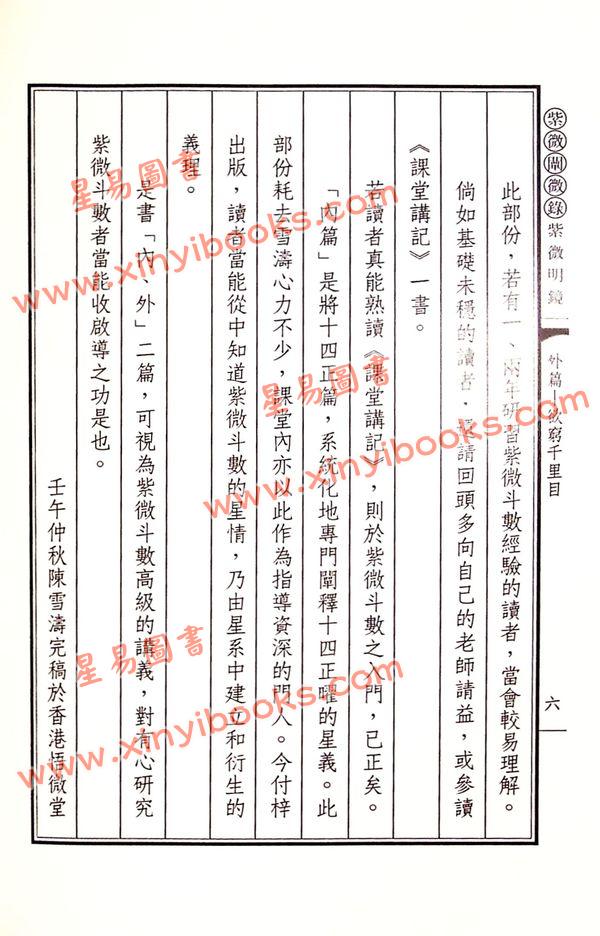 紫微闡微錄 紫微明鏡
外篇—欲窮千里目
六
此部份，若有一、兩年研習紫微斗數經驗的讀者，當會較易理解。
倘如基礎未穩的讀者，還請回頭多向自己的老師請益，或參讀
《課堂講記》一書。
若讀者真能熟讀《課堂講記》，則於紫微斗數之入門，已正矣。
「內篇」是將十四正篇，系統化地專門闡釋十四正曜的星義。此
部份耗去雪濤心力不少，課堂內亦以此作為指導資深的門人。今付梓
出版，讀者當能從中知道紫微斗數的星情，乃由星系中建立和衍生的
義理。
是書「內、外」二篇，可視為紫微斗數高級的講義，對有心研究
紫微斗數者當能收啟導之功是也。
壬午仲秋陳雪濤完稿於香港悟微堂
星易圖書
www.xinyibooks.com
星易圖書
www.xinyibooks.com
星易圖書
www.xinyibooks.com